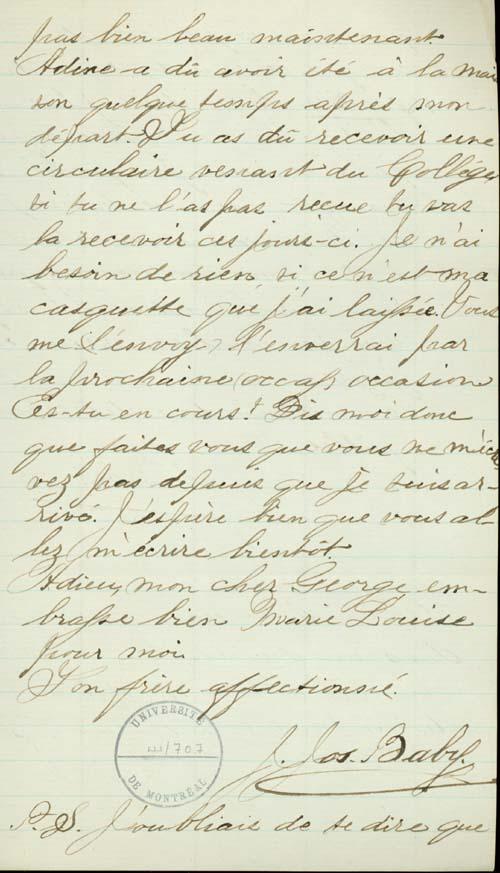 pas bien beau maintenant.
Adine a dû avoir été à la mai
son quelque temps après mon
départ. Tu as dû recevoir une
circulaire venant du Collége
si tu ne l'as pas reçue tu vas
la recevoir ces jours-ci. Je n'ai
besoin de rien si ce n'est ma
casquette que j'ai laissée. Vous
me (l'envoy) l'enverrai par
la prochaine (occas) occasion
Es-tu en cours? Dis moi donc
que faites vous que vous ne m'écri
vez pas depuis que je suis ar-
rivé. J'espère bien que vous al-
lez m'écrire bientôt.
Adieu, mon cher George, em-
brasse bien Marie Louise
pour moi.
Ton frère affectionné.
UNIVERSITÉ
III/707
DE MONTRÉAL
J. Jos. Baby.
P.S. J'oubliais de te dire que